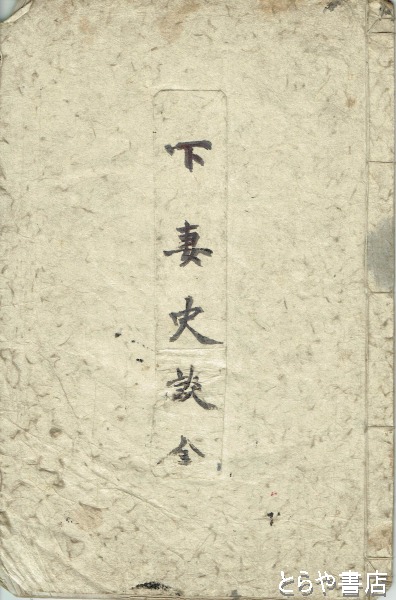 下妻史談全
とらや書店